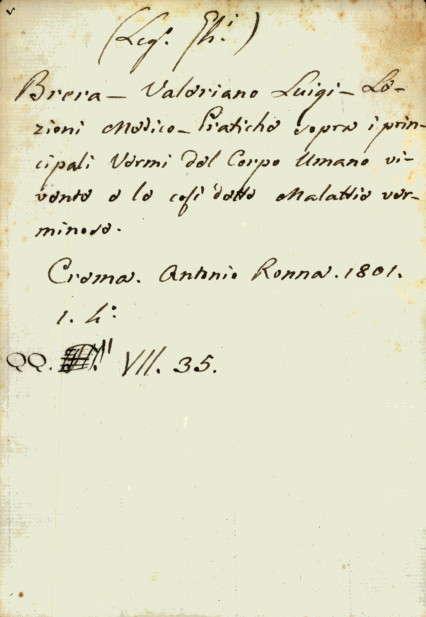 (Leg. Gh.i)
Brera - Valeriano Luigi - Le-
zioni Medico-Pratiche sopra i prin-
cipali Vermi del Corpo Umano vi-
vente e le così dette Malattie ver-
minose.
Crema. Antonio Ronna. 1801.
1. 4.°
QQ. VII. 35.